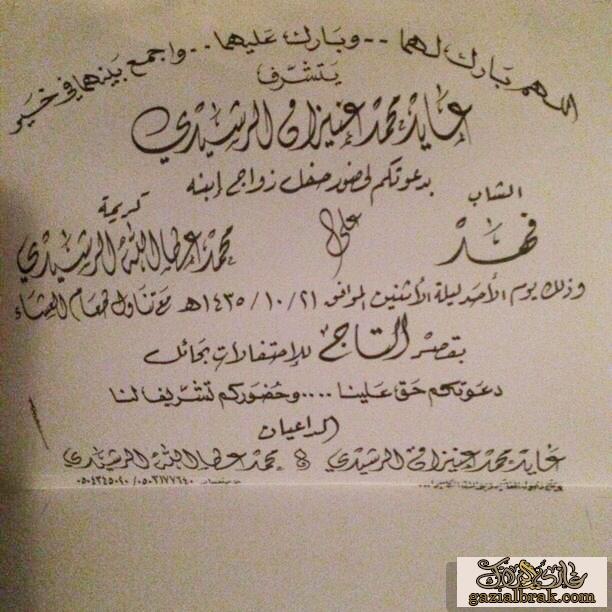 اللهم بارك لهما .. وبارك عليهما .. واجمع بينهما في خير
يتشرف
عايد محمد عنيزان الرشيدي
بدعوتكم لحضور حفل زواج إبنه
الشاب
فهد
على
كريمة
محمد عطاالله الرشيدي
وذلك يوم الأحد ليلة الأثنين الموافق ٢١ / ١٠ / ١٤٣٥هـ مع تناول طعام العشاء
بقصر التاج للإحتفالات بحائل
دعوتكم حق علينا .... وحضوركم تشريف لنا
الداعيان
عايد محمد عنيزان الرشيدي & محمد عطاالله الرشيدي
gazialbrak.com